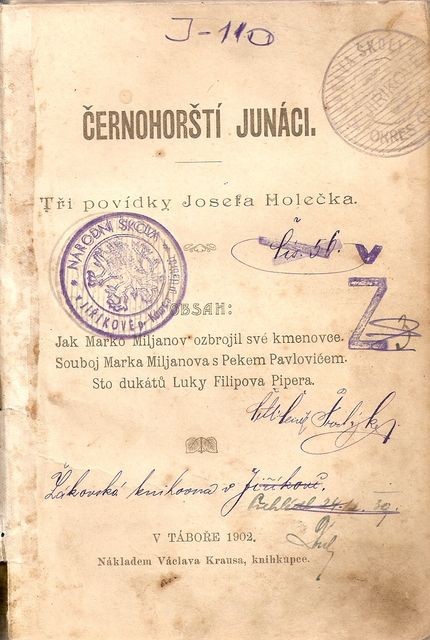 J-110
ČERNOHORŠTÍ JUNÁCI.
Tři povídky Josefa Holečka.
NÁRODNÍ ŠKOLA
v JIŘÍKOVĚ
Čís. 56.
V
Z
OBSAH:
Jak Marko Miljanov ozbrojil své kmenovce.
Souboj Marka Miljanova s Pekem Pavlovićem.
Sto dukátů Luky Filipova Pipera.
Žákovská knihovna v Jiříkově.
V TÁBOŘE 1902.
Nákladem Václava Krausa, knihkupce.